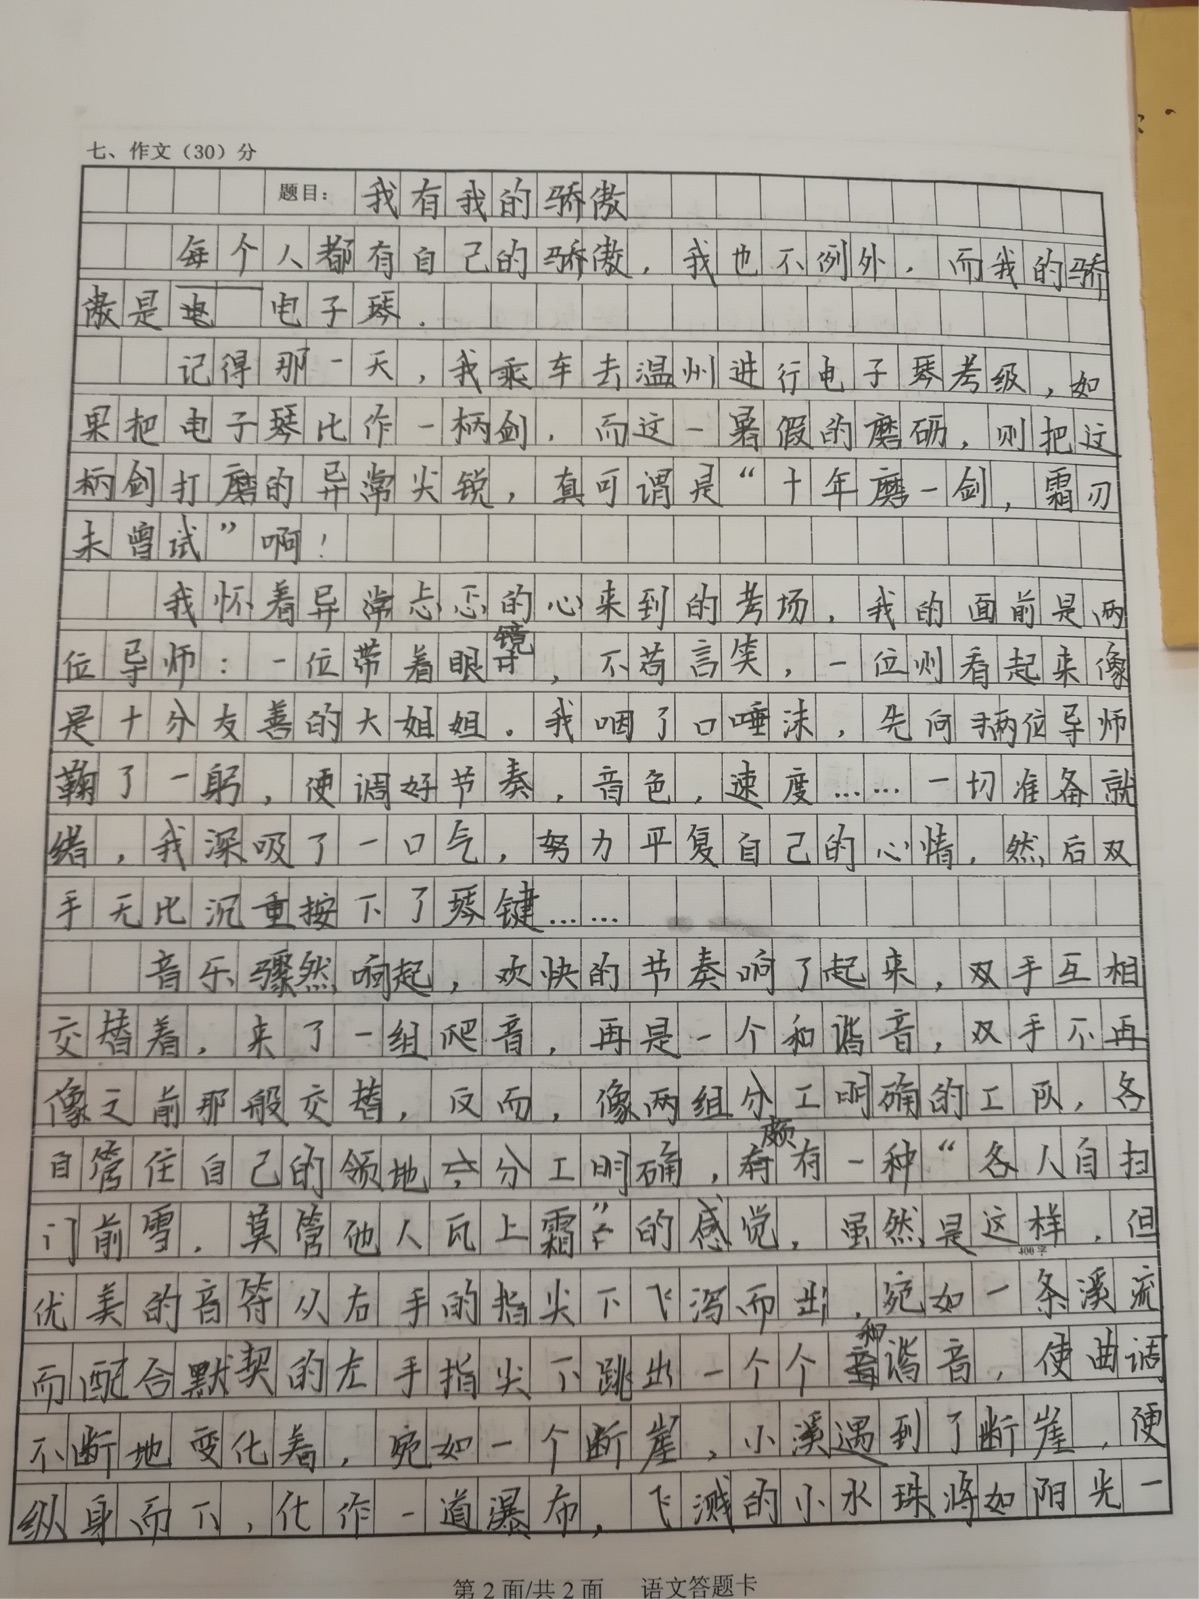 七、作文（30）分
题目：我有我的骄傲
每个人都有自己的骄傲，我也不例外，而我的骄
傲是电子琴．
记得那一天，我乘车去温州进行电子琴考级，如
果把电子琴比作一柄剑，而这一暑假的磨砺，则把这
柄剑打磨的异常尖锐，真可谓是“十年磨一剑，霜刃
未曾试”啊！
我怀着异常忐忑的心来到的考场，我的面前是两
位导师：一位带着眼镜，不苟言笑，一位则看起来像
是十分友善的大姐姐。我咽了口唾沫，先向两位导师
鞠了一躬，便调好节奏，音色，速度……一切准备就
绪，我深吸了一口气，努力平复自己的心情，然后双
手无比沉重按下了琴键……
音乐骤然响起，欢快的节奏响了起来，双手互相
交替着，来了一组爬音，再是一个和谐音，双手不再
像之前那般交替，反而，像两组分工明确的工队，各
自管住自己的领地，分工明确，颇有一种“各人自扫
门前雪，莫管他人瓦上霜”的感觉，虽然是这样，但
400字
优美的音符从右手的指尖下飞泻而出，宛如一条溪流
而配合默契的左手指尖下跳出一个个和谐音，使曲调
不断地变化着，宛如一个断崖，小溪遇到了断崖，便
纵身而下，化作一道瀑布，飞溅的小水珠将如阳光一
第2面/共2面 语文答题卡